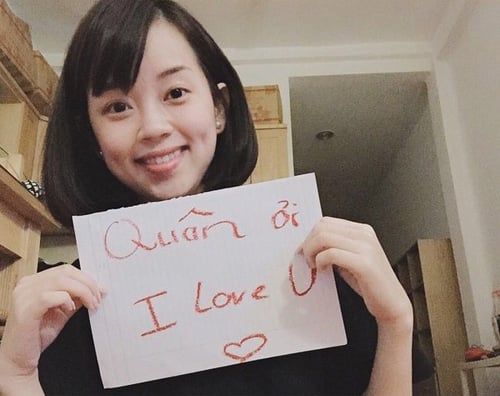 Quân ởi
I Love U